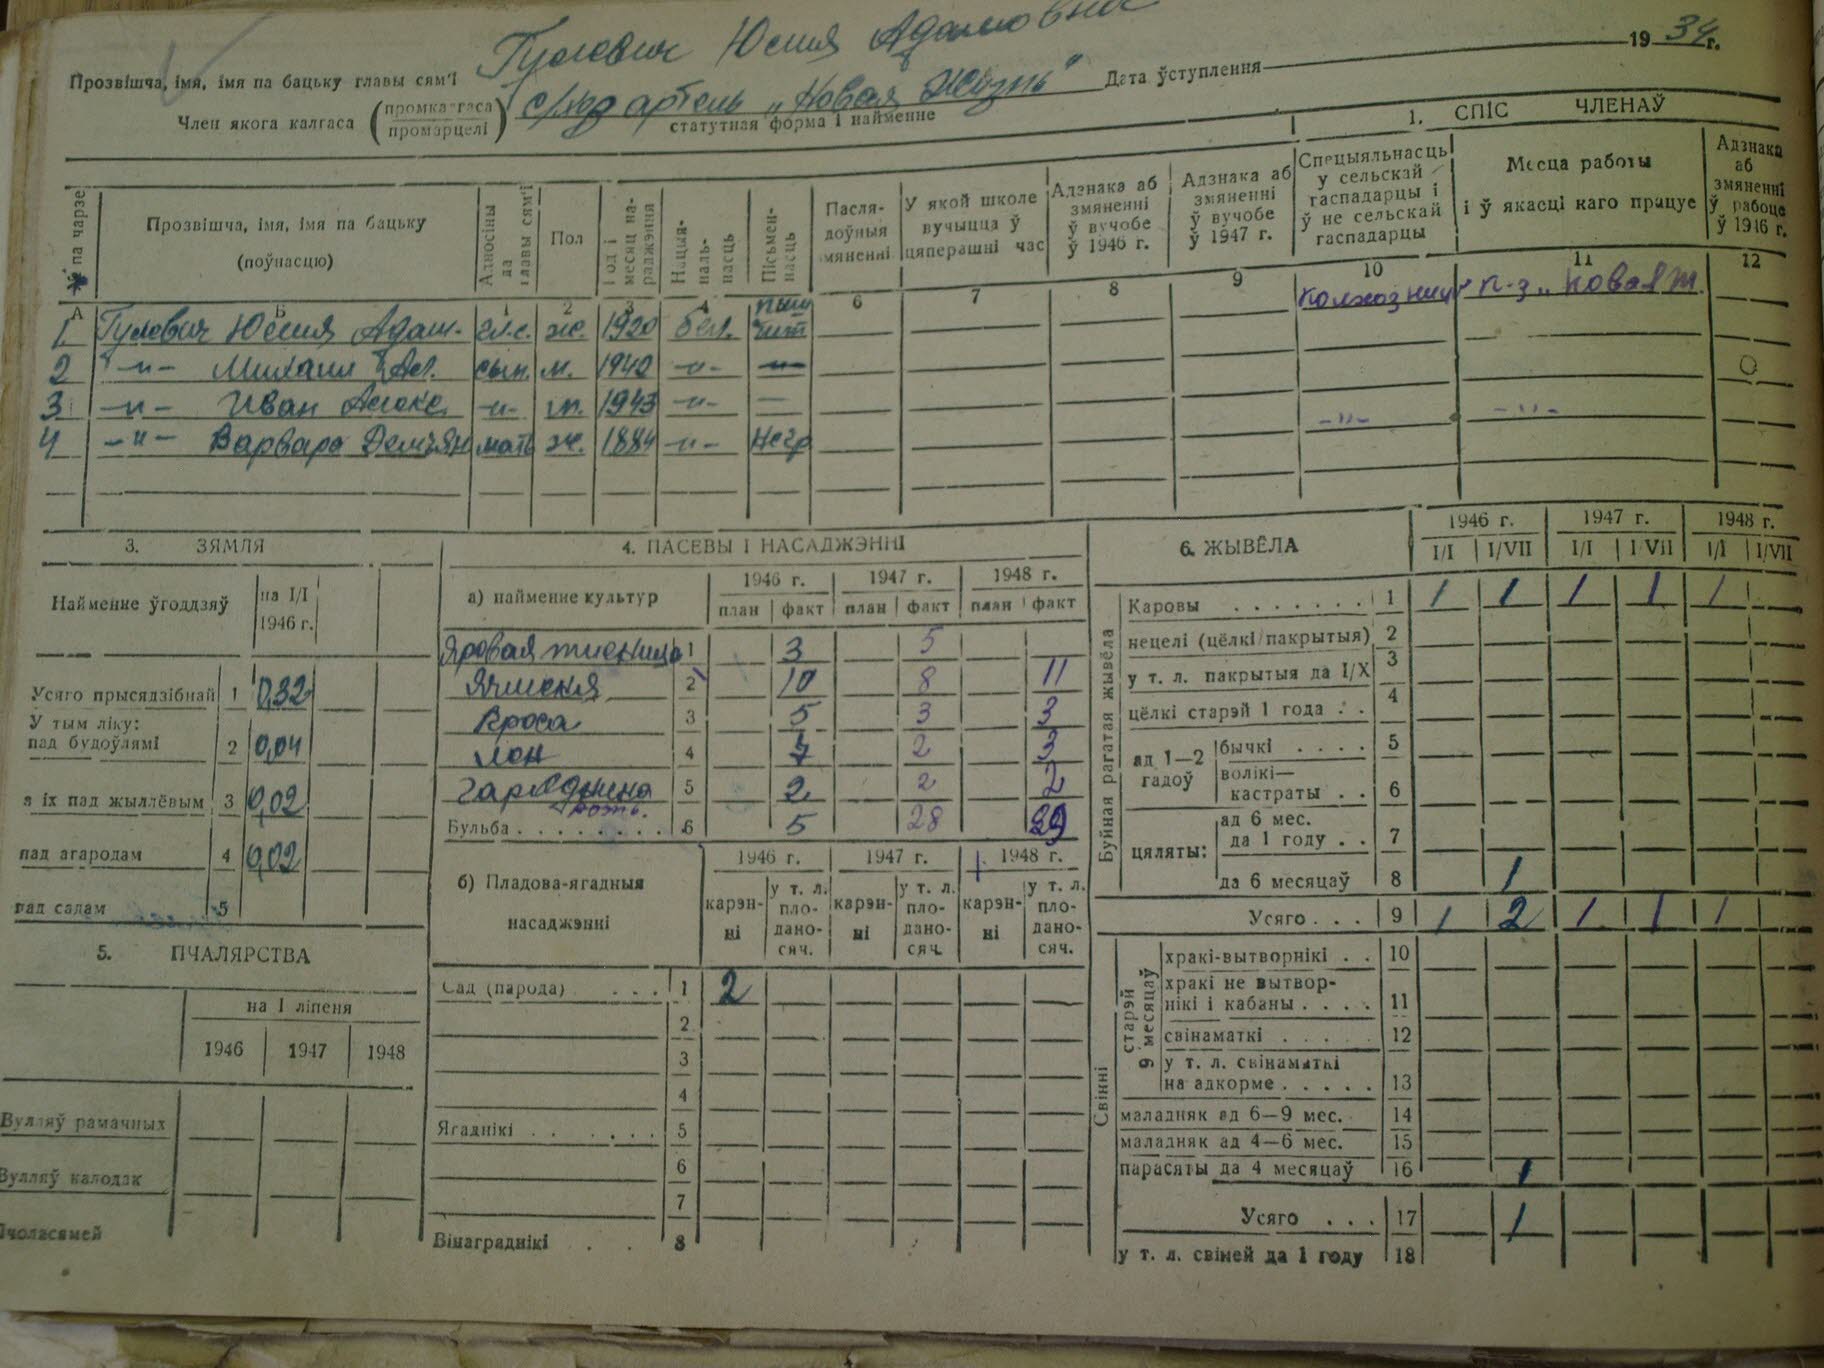 Прозвішча, імя, імя па бацьку главы сям'і Гулевич Юлия Адамовна
Член якога калгаса (промкалгаса промарцелі) с/хоз артель „Новая Жизнь"
статутная форма і найменне
Дата ўступлення 1934 г.
1. СПІС ЧЛЕНАЎ
№ па чарзе
Прозвішча, імя, імя па бацьку (поўнасцю)
Адносіны да главы сям'і
Пол
Год і месяц нараджэння
Нацыянальнасць
Пісьменнасць
Пасля­доўныя змяненні
У якой школе вучыцца ў цяперашні час
Адзнака аб змяненні ў вучобе ў 1946 г.
Адзнака аб змяненні ў вучобе ў 1947 г.
Спецыяльнасць у сельскай гаспадарцы і ў не сельскай гаспадарцы
Месца работы і ў якасці каго працуе
Адзнака аб змяненні ў рабоце ў 1946 г.
А Б 1 2 3 4 6 7 8 9 10 11 12
1. Гулевич Юлия Адам. гл.с. ж. 1920 бел. чит колхозниц к-з „Новая Ж.
2 -"- Михаил Ал. сын. м. 1942 -"- —
3 -"- Иван Алекс. -"- м. 1943 -"- —
4 -"- Варвара Демьян мать ж. 1884 -"- негр -"- -"-
3. ЗЯМЛЯ
Найменне ўгоддзяў на I/I 1946 г.
Усяго прысядзібнай 1 0,32
У тым ліку:
пад будоўлямі 2 0,04
з іх пад жыллёвым 3 0,02
пад агародам 4 0,02
пад садам 5
5. ПЧАЛЯРСТВА
на I ліпеня
1946 1947 1948
Вулляў рамачных
Вулляў калодак
Пчоласямей
4. ПАСЕВЫ І НАСАДЖЭННІ
а) найменне культур 1946 г. 1947 г. 1948 г.
план факт план факт план факт
Яровая пшеница 1 3 5
Ячменя 2 10 8 11
Проса 3 5 3 3
Лён 4 2 3
Гародніна 5 2 2 2
Бульба 6 5 28 29
б) Пладова-ягадныя насаджэнні 1946 г. 1947 г. 1948 г.
карэнні у т. л. пладаносяч. карэнні у т. л. пладаносяч. карэнні у т. л. пладаносяч.
Сад (парода) . . . 1 2
2
3
4
Ягаднікі . . . . . 5
6
7
Вінаграднікі . . 8
6. ЖЫВЁЛА 1946 г. 1947 г. 1948 г.
I/I I/VII I/I I/VII I/I I/VII
Буйная рагатая жывёла
Каровы . . . . . . . 1 1 1 1 1 1
нецелі (цёлкі пакрытыя) 2
у т. л. пакрытыя да I/X 3
цёлкі старэй 1 года . . 4
ад 1—2 гадоў
бычкі . . . . 5
волікі—кастраты . . 6
цяляты:
ад 6 мес. да 1 году . . 7
да 6 месяцаў 8 1
Усяго . . . 9 1 2 1 1 1
Свінні
старэй 9 месяцаў
хракі-вытворнікі . . 10
хракі не вытворнікі і кабаны . . . . 11
свінаматкі . . . . . 12
у т. л. свінаматкі на адкорме . . . . . 13
маладняк ад 6—9 мес. 14
маладняк ад 4—6 мес. 15
парасяты да 4 месяцаў 16 1
Усяго . . . 17 1
у т. л. свіней да 1 году 18